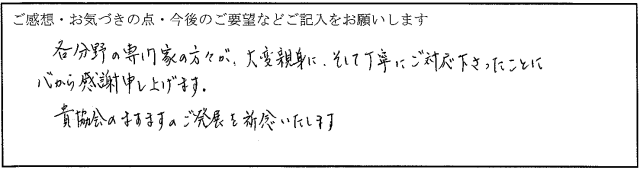 ご感想・お気づきの点・今後のご要望などご記入をお願いします
各分野の専門家の方々が、大変親身に、そして丁寧にご対応下さったことに
心から感謝申し上げます。
貴協会のますますのご発展を祈念いたします